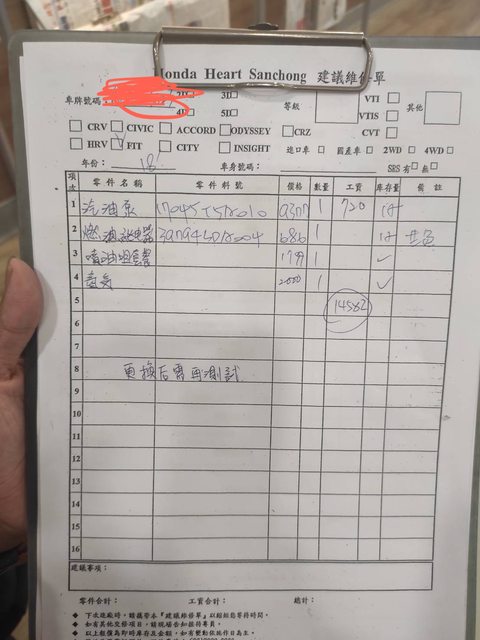 Honda Heart Sanchong 建議維修單
車牌號碼: 2D□ 3D□ 等級 VTI □ 其他
4D□ 5D□ VTIS □
□ CRV □ CIVIC □ ACCORD □ODYSSEY □CRZ CVT □
□ HRV □ FIT □ CITY □ INSIGHT 進口車 □ 國產車 □ 2WD □ 4WD □
年份: 18 車身號碼: SRS 有□ 無□
項次 零件名稱 零件料號 價格 數量 工資 庫存量 備註
1 汽油泵 17045T5A010 1 720
2 燃油 686 1
3 噴油嘴 1799 1 ✓
4 2000 1 ✓
5 14562
6
7
8 更換后需再測試
9
10
11
12
13
14
15
16
建議事項:
零件合計: 工資合計: 總計:
◆ 下次蒞廠時,請攜帶本『建議維修單』以縮短您寶貴時間。
◆ 如有其他交修項目,請現場告知接待專員。
◆ 以上報價為即時庫存及金額,如有變動依施作日為主。